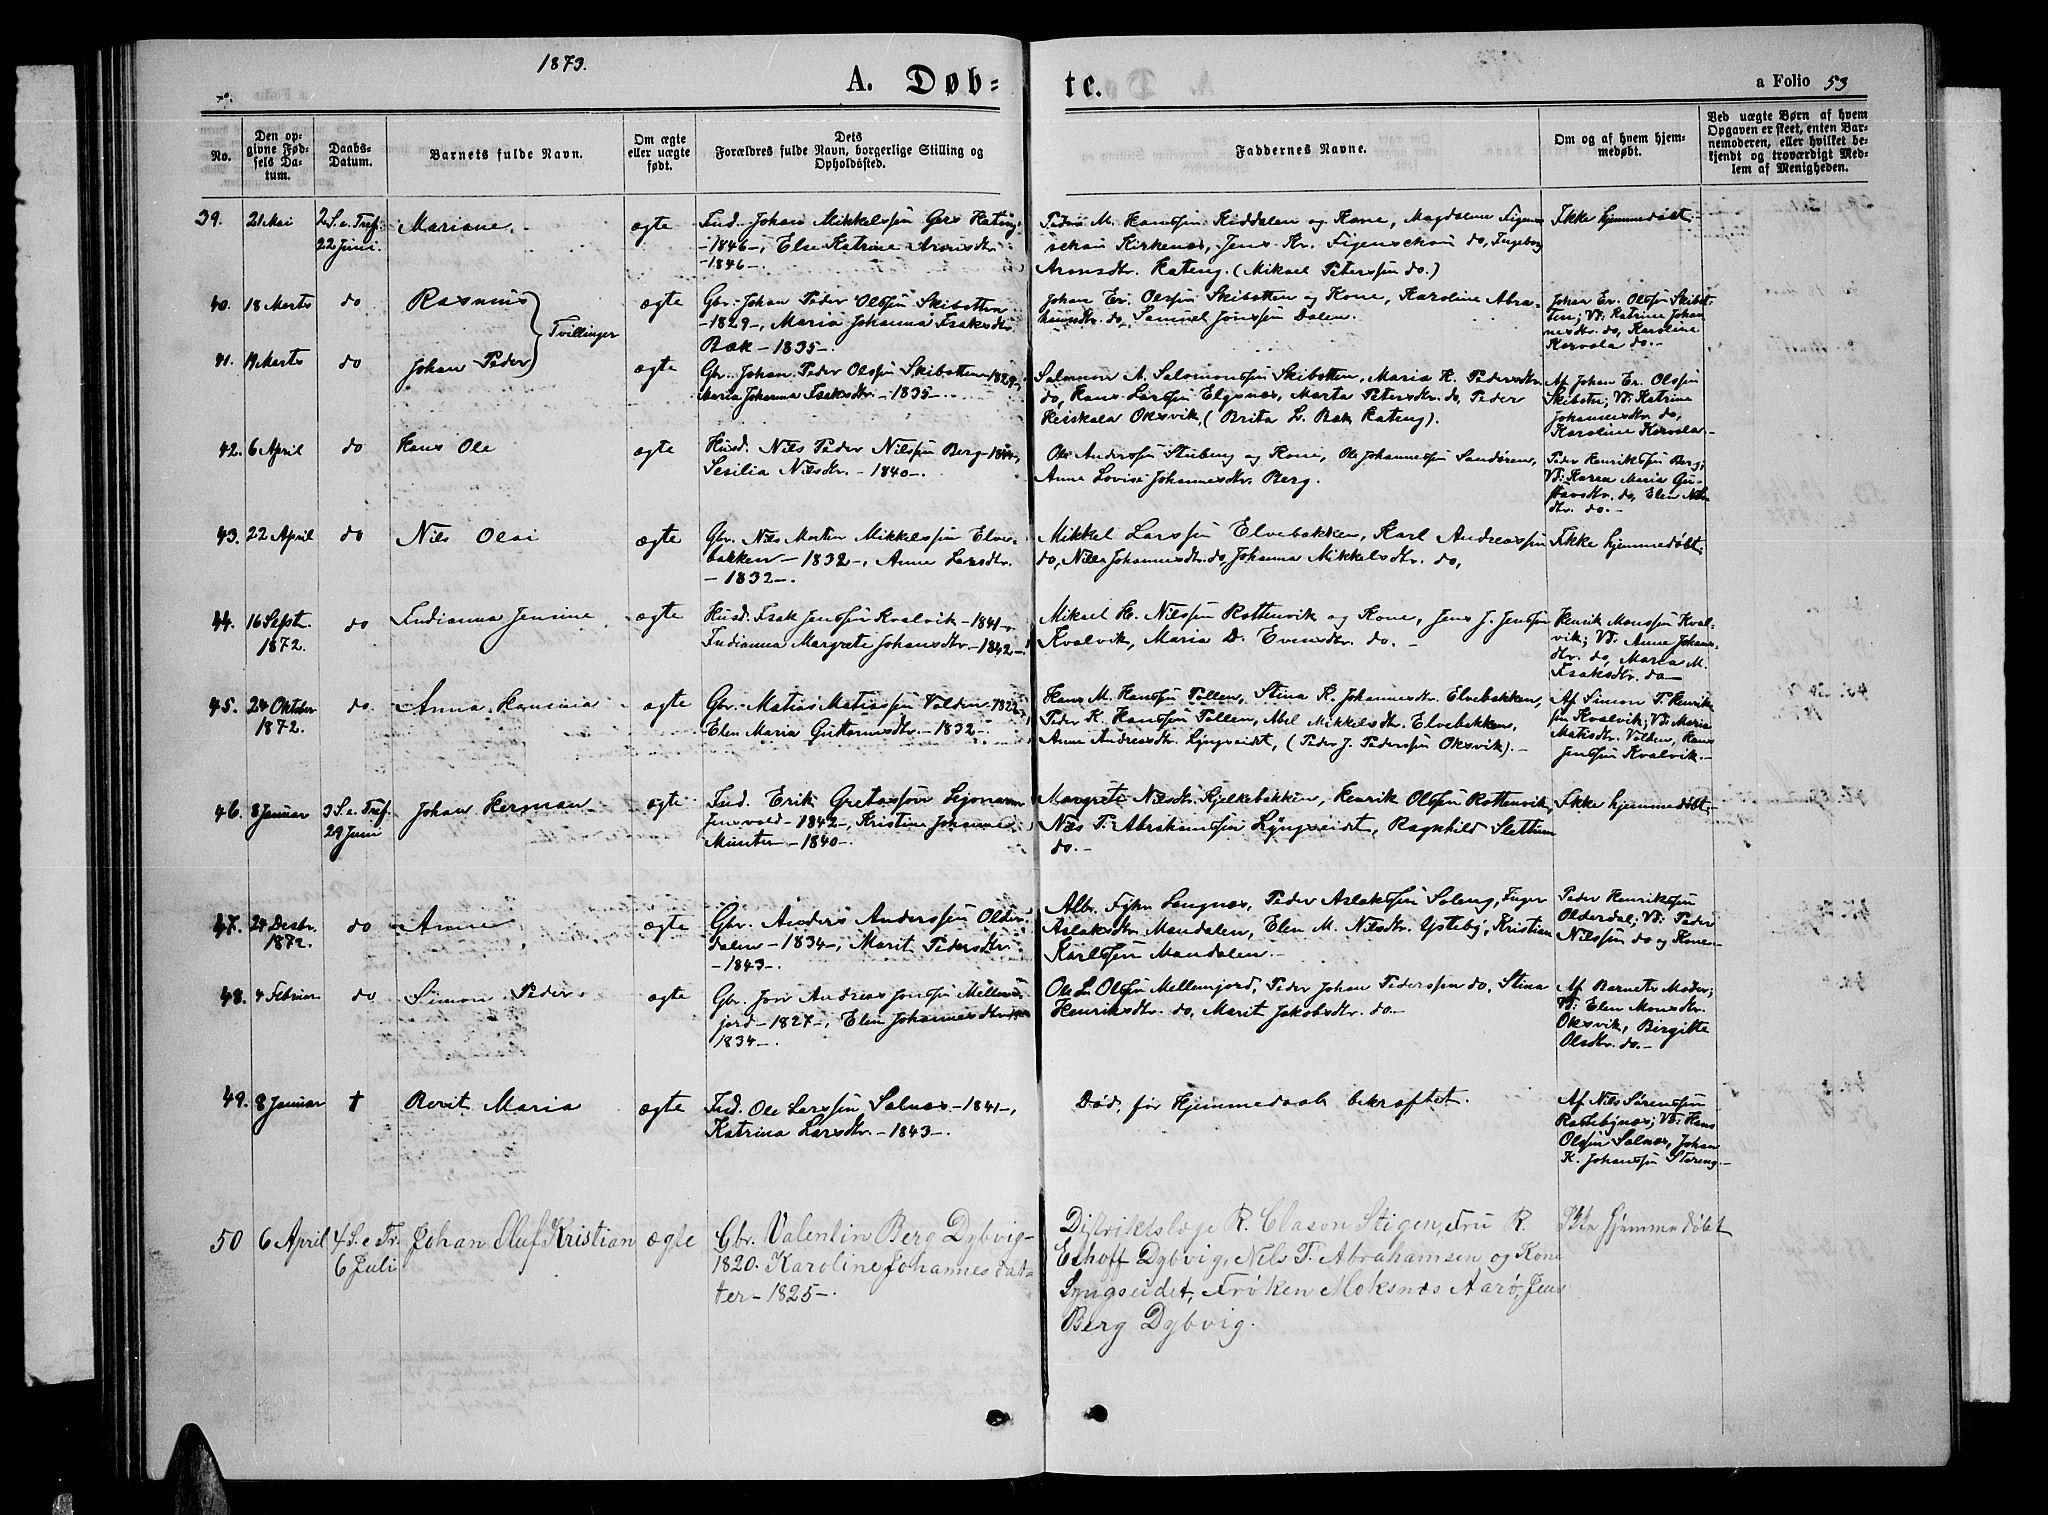 1873.
A. Døb-
te.
a Folio 53
No.
Den op-
givne Fød-
sels Da-
tum.
Daabs-
Datum.
Barnets fulde Navn.
Om ægte
eller uægte
født.
Dets
Forældres fulde Navn, borgerlige Stilling og
Opholdssted.
Faddernes Navne.
Om og af hvem hjem-
medøbt.
Ved uægte Børn af hvem
Opgaven er skeet, enten Bar-
nemoderen, eller hvilket be-
kjendt og troværdigt Med-
lem af Menigheden.
39. 21 Mai
2 S. e. Tref.
22 Juni.
Mariane
ægte
Ind. Johan Mikkelssøn
-1846-, Elen Katrine Aronsdtr.
-1846-.
Peder M. Hanssøn Kiddalen og Kone, Magdalena Figen-
schau Kirkenæs, Jens Kr. Figenschau do, Ingeborg
Aronsdtr. Kateng. (Mikael Peterssøn do.)
Ikke hjemmedøbt.
40. 18 Marts do Rasmus
Tvillinger
ægte
Gbr. Johan Peder Olssøn Skibotten
-1829-, Maria Johanna Isaksdtr.
Bæk -1835-.
Johan Er. Olssøn Skibotten og Kone, Karoline Abra-
hamsdtr. do, Samuel Jonssøn Dalen.
Johan Er. Olssøn Skibot-
ten; Vd: Katrine Johan-
nesdtr. do, Karoline
Kervola do.-
41. 19 Marts do Johan Peder
ægte
Gbr. Johan Peder Olssøn Skibotten -1829-,
Maria Johanna Isaksdtr. -1835-.
Salomon A. Salomonssøn Skibotten, Maria K. Pedersdtr.
do, Hans Larssøn Elgsnæs, Marta Petersdtr. do, Peder
Heiskala Oksvik, (Brita L. Bæk Kateng).
Af Johan Er. Olssøn
Skibotn; Vd: Katrine
Johannesdtr. do,
Karoline Kervola.-
42. 6 April do Hans Ole
ægte
Husd. Nils Peder Nilssøn Berg
Sesilia Nilsdtr. -1840-.
Ole Anderssøn Stuberg og Kone, Ole Johannessøn Sandøren,
Anne Lovise Johannesdtr. Berg.
Peder Henrikssøn Berg;
Vd: Karen Maria Gu-
stavsdtr. do, Elen Nils-
dtr. do.-
43. 22 April do Nils Olai
ægte
Gbr. Nils Martin Mikkelssøn Elve-
bakken -1832-, Anne Larsdtr.
-1832-.
Mikkel Larssøn Elvebakken, Karl Andreassøn
do, Nilla Johannesdtr. do, Johanna Mikkelsdtr. do,
Ikke hjemmedøbt.
44. 16 Septr.
1872.
do Indianna Jensine
ægte
Husd. Isak Jenssøn Kvalvik -1841-,
Indianna Margrete Johansdtr. -1842-.
Mikael H. Nilssøn Rottenvik og Kone, Jens J. Jenssøn
Kvalvik, Maria D. Evensdtr. do.-
Henrik Monssøn Kval-
vik; Vd: Anne Johans-
dtr. do, Maria M.
Isaksdtr. do-
45. 24 Oktober
1872.
do. Anna Hansina
ægte
Gbr. Matias Matiassøn Volden -1822-,
Elen Maria Guttormsdtr. -1832-.
Hans M. Hanssøn Pollen, Stina K. Johannesdtr. Elvebakken,
Peder K. Hanssøn Pollen, Abel Mikkelsdtr. Elvebakken,
Anne Andreasdtr. Lyngseidet, (Peder J. Pederssøn Oksvik).-
Af Simon P. Henrik-
søn Kvalvik; Vd: Maria
Matisdtr. Volden, Hans
Jenssøn Kvalvik.-
46. 8 Januar
3 S. e. Tref.
29 Juni
Johan Herman
ægte
Ind. Erik Gretassøn
Jensvold -1842-, Kristine Johanne
Münter -1840-.
Margrete Nilsdtr. Kjelkebakken, Henrik Olssøn Rottenvik,
Nils T. Abrahamssøn Lyngseidet, Ragnhild Slettum
do.-
Ikke hjemmedøbt.
47. 24 Decbr.
1872.
do Anne
ægte
Gbr. Anders Anderssøn Older-
dalen -1834-, Marit Pedersdtr.
-1843-.
Albr. Langnæs, Peder Aslakssøn Soleng, Inger
Aslaksdtr. Mandalen, Elen M. Nilsdtr. Ysteby, Kristian
Karlssøn Mandalen.-
Peder Henrikssøn
Olderdal; Vd: Peder
Nilssøn do og Kone-
48. 4 Februar do Simon Peder
ægte
Gbr. Jon Andreas Jonssøn Mellem-
jord -1827-, Elen Johannesdtr.
1834-.
Ole L. Olssøn Mellemjord, Peder Johan Pederssøn do, Stina
Henriksdtr. do, Marit Jakobsdtr. do.-
Af Barnets Moder;
Vd: Elen Monsdtr.
Oksvik, Birgitte
Olsdtr. do.-
49. 8 Januar † Berit Maria
ægte
Ind. Ole Larssøn Solnæs -1841-,
Katrina Larsdtr. -1843-.
Død, før Hjemmedaab bekræftet.
Af Nils Sørenssøn
Rossebynæs; Vd: Hans
Olssøn Solnæs, Johan
K. Johanssøn Storeng.-
50 6 April
4 S. e. Tr.
6 Juli
Johan Oluf Kristian
ægte
Gbr. Valentin Berg Dybvig-
1820. Karoline Johannesdat-
ter -1825-.
Distriktslæge R. Clason Stigen, Fru R.
Eshoff Dybvig, Nils T. Abrahamsen og Kone
Lyngseidet, Frøken Moksnæs Aarø, Jens
Berg Dybvig.
Ikke hjemmedøbt